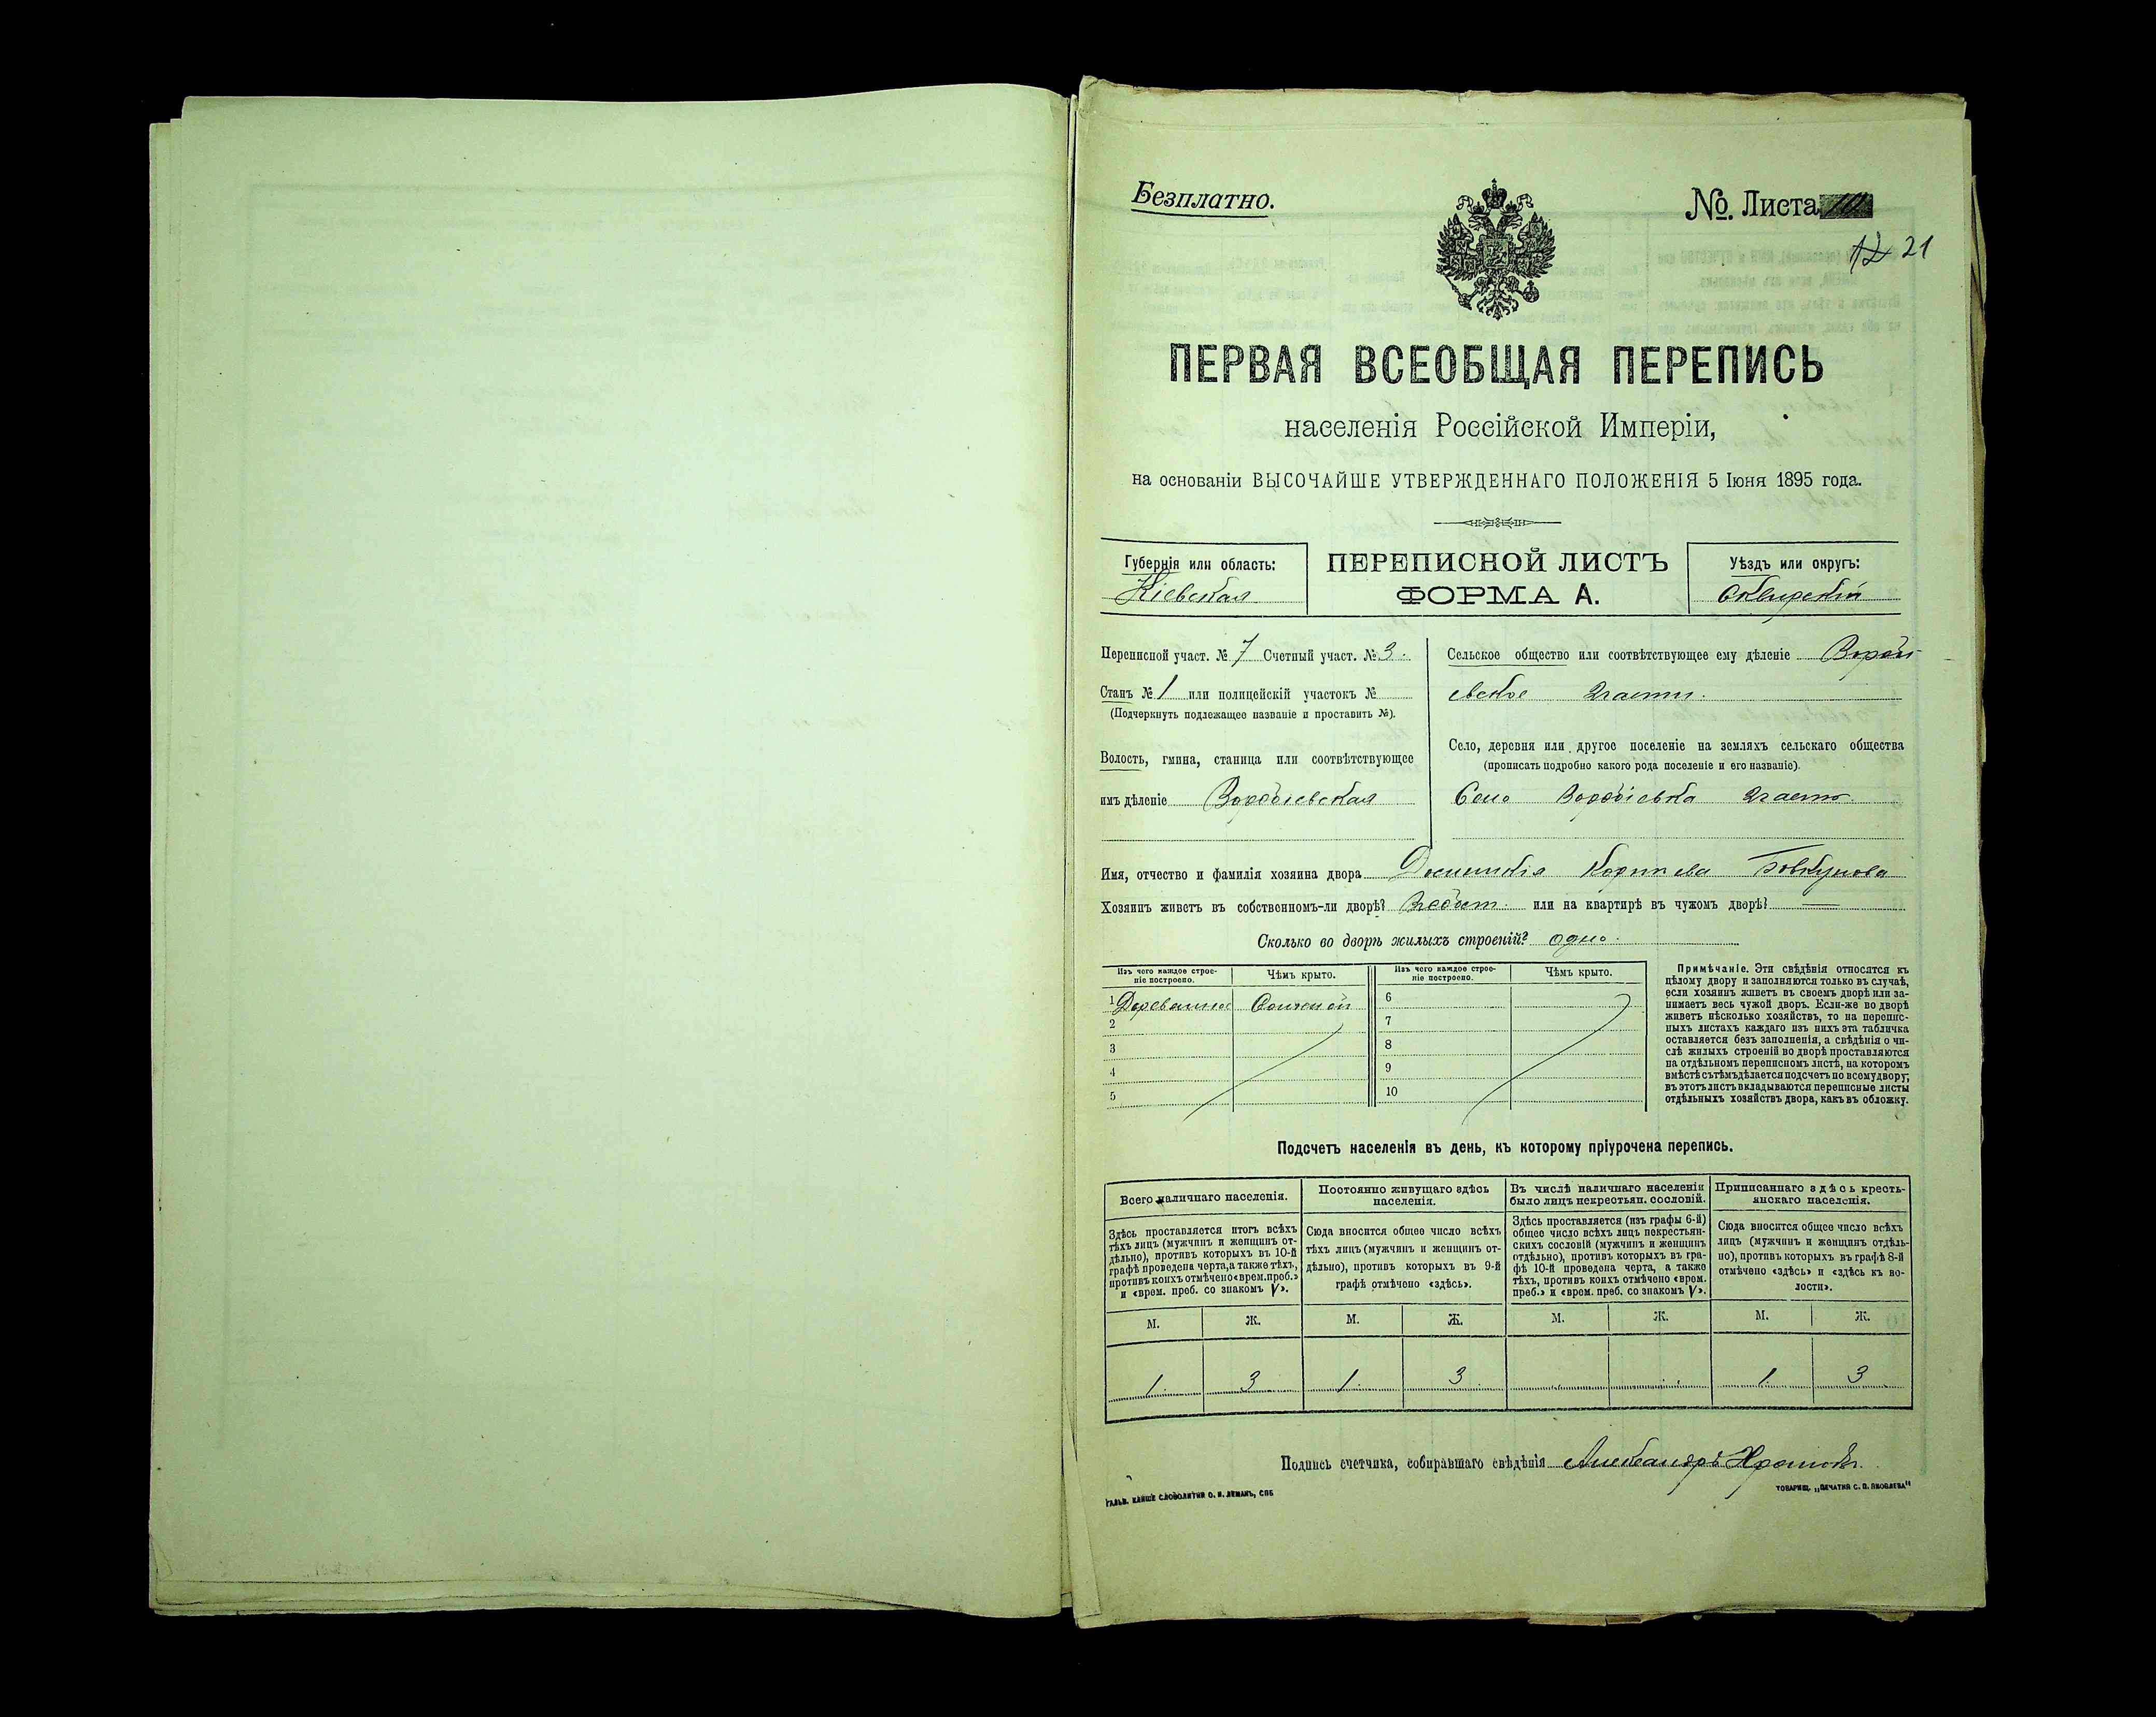 Безплатно.
№. Листа 10
12 21
ПЕРВАЯ ВСЕОБЩАЯ ПЕРЕПИСЬ
населенія Россійской Имперіи,
на основаніи ВЫСОЧАЙШЕ УТВЕРЖДЕННАГО ПОЛОЖЕНІЯ 5 Іюня 1895 года.
Губернія или область:
Кіевская
ПЕРЕПИСНОЙ ЛИСТЪ
ФОРМА А.
Уѣздъ или округъ:
Сквирскій
Переписной участ. № 7 Счетный участ. № 3.
Станъ № 1 или полицейскій участокъ №
(Подчеркнуть подлежащее названіе и проставить №).
Волость, гмина, станица или соотвѣтствующее
имъ дѣленіе Воробіевская
Сельское общество или соотвѣтствующее ему дѣленіе Вороби
евское
Село, деревня или другое поселеніе на земляхъ сельскаго общества
(прописать подробно какого рода поселеніе и его названіе).
Село Воробіевка
Имя, отчество и фамилія хозяина двора Бовкунова
Хозяинъ живетъ въ собственномъ-ли дворѣ? или на квартирѣ въ чужомъ дворѣ? —
Сколько во дворѣ жилыхъ строеній? одно.
Изъ чего каждое строе-
ніе построено.
Чѣмъ крыто.
1 Деревянное Соломой
2
3
4
5
Изъ чего каждое строе-
ніе построено.
Чѣмъ крыто.
6
7
8
9
10
Примѣчаніе. Эти свѣдѣнія относятся къ
цѣлому двору и заполняются только въ случаѣ,
если хозяинъ живетъ въ своемъ дворѣ или за-
нимаетъ весь чужой дворъ. Если-же во дворѣ
живетъ нѣсколько хозяйствъ, то на перепис-
ныхъ листахъ каждаго изъ нихъ эта табличка
оставляется безъ заполненія, а свѣдѣнія о чи-
слѣ жилыхъ строеній во дворѣ проставляются
на отдѣльномъ переписномъ листѣ, на которомъ
вмѣстѣ съ тѣмъ дѣлается подсчетъ по всему двору;
въ этотъ листъ вкладываются переписные листы
отдѣльныхъ хозяйствъ двора, какъ въ обложку.
Подсчетъ населенія въ день, къ которому пріурочена перепись.
Всего наличнаго населенія.
Здѣсь проставляется итогъ всѣхъ
тѣхъ лицъ (мужчинъ и женщинъ от-
дѣльно), противъ которыхъ въ 10-й
графѣ проведена черта, а также тѣхъ,
противъ коихъ отмѣчено «врем. преб.»
и «врем. преб. со знакомъ V».
Постоянно живущаго здѣсь
населенія.
Сюда вносится общее число всѣхъ
тѣхъ лицъ (мужчинъ и женщинъ от-
дѣльно), противъ которыхъ въ 9-й
графѣ отмѣчено «здѣсь».
Въ числѣ наличнаго населенія
было лицъ некрестьян. сословій.
Здѣсь проставляется (изъ графы 6-й)
общее число всѣхъ лицъ некрестьян-
скихъ сословій (мужчинъ и женщинъ
отдѣльно), противъ которыхъ въ гра-
фѣ 10-й проведена черта, а также
тѣхъ, противъ коихъ отмѣчено «врем.
преб.» и «врем. преб. со знакомъ V».
Приписаннаго здѣсь кресть-
янскаго населенія.
Сюда вносится общее число всѣхъ
лицъ (мужчинъ и женщинъ отдѣль-
но), противъ которыхъ въ графѣ 8-й
отмѣчено «здѣсь» и «здѣсь къ во-
лости».
М. Ж. М. Ж. М. Ж. М. Ж.
1 3 1 3 1 3
Подпись счетчика, собиравшаго свѣдѣнія Александръ
ТОВАРИЩ. „ПЕЧАТНЯ С. П. ЯКОВЛЕВА"